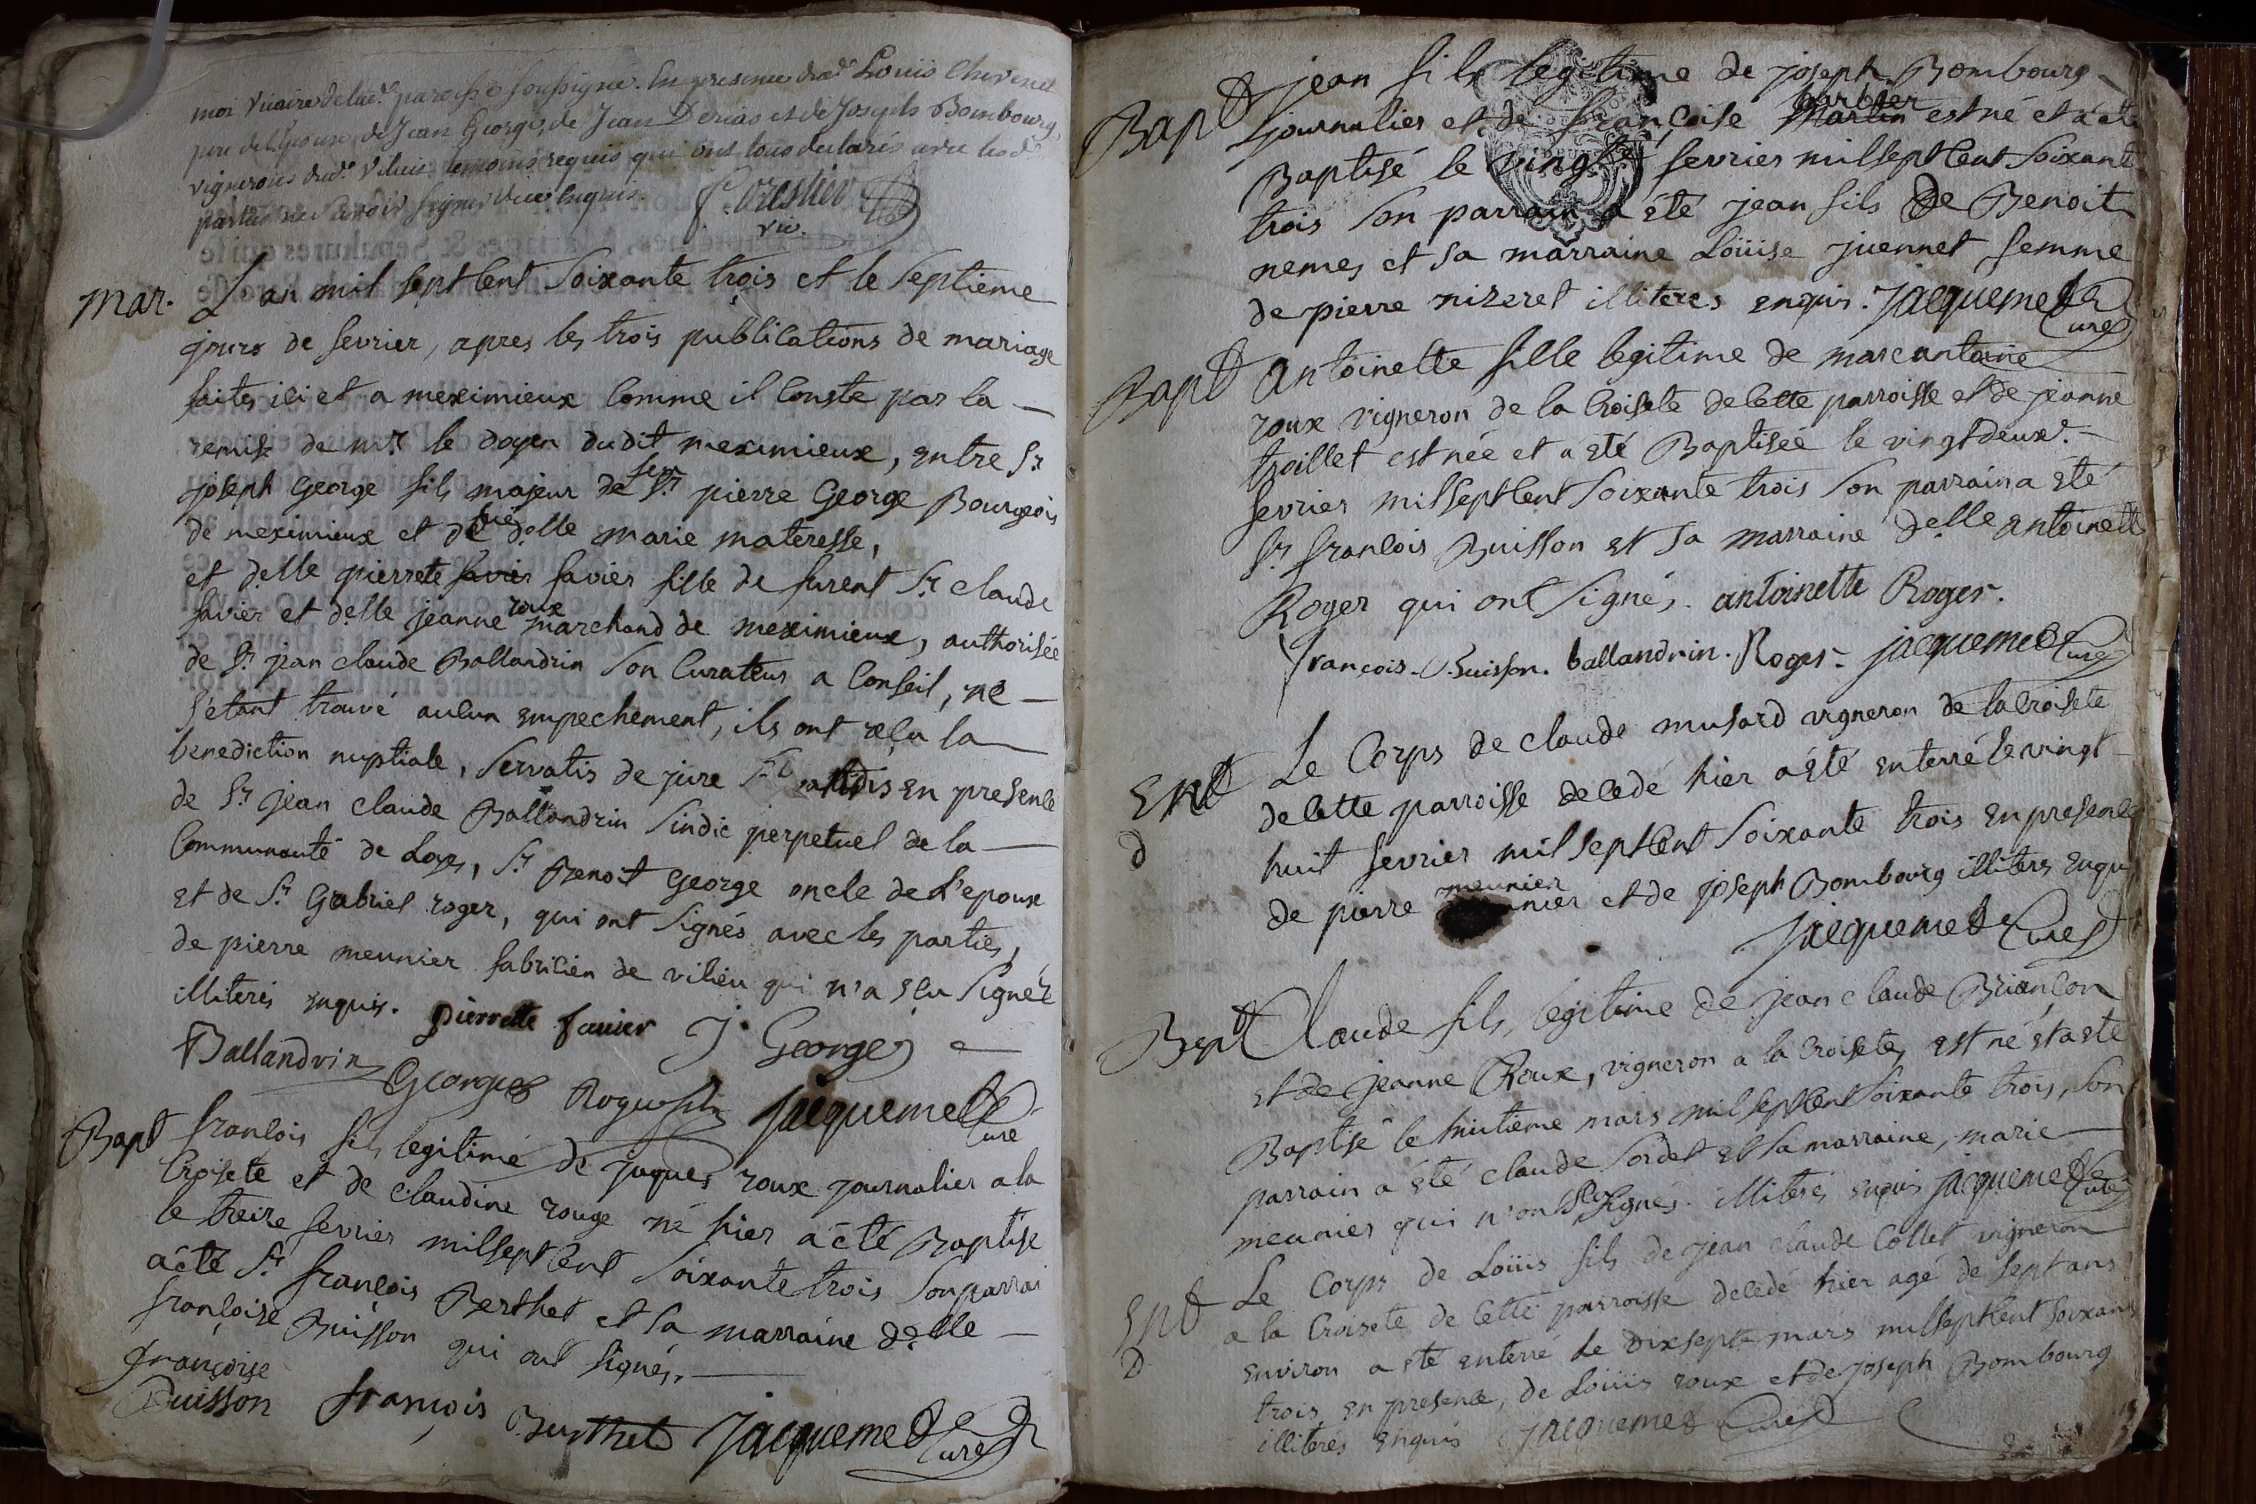 moi vicaire de lad.e paroisse soussigné. En presence dud.t Louis Chevenet
pere de l'Epouse, de Jean George, de Jean Derias et de Joseph Bombourg,
vignerons dud.t Vilieu temoins requis qui ont tous declarés avec les d.es
parties ne savoir signer de ce enquis. Forestier
vic.
Mar. L'an mil sept Cent Soixante trois et le Septieme
jours de fevrier, apres les trois publications de mariage
faites ici et a meximieux Comme il Conste par la
remise de m.r le doyen dudit meximieux, entre S.r
joseph George fils majeur de feu S.r pierre George Bourgeois
de meximieux et de delle marie materesse,
et delle pierrete favier fille de furent S.r claude
favier et delle jeanne roux marchand de meximieux, authorisée
de S.r jean claude Ballandrin Son Curateur a Conseil, ne
S'etant trouvé aucun empechement, ils ont reçu la
benediction nuptiale, Servatis de jure en presence
de S.r Jean claude Ballandrin Sindic perpetuel de la
Communauté de Loyes, S.r Benoit George oncle de L'epoux
et de S.r Gabriel roger, qui ont Signés avec les parties,
de pierre meunier fabricien de vilieu qui n'a sçu Signer
illiterés enquis. pierrette favier J. George
Ballandrin George Roger fils jacquemet Curé
Bapt françois fils legitime de jaques roux journalier a la
Croisete et de claudine rouge né hier a été Baptisé
le treize fevrier mil sept Cent Soixante trois Son parrai
a été S.r françois Berthet et Sa marraine delle
françoise Buisson qui ont Signés.
françoise
Buisson françois Berthet jacquemet Curé
Bapt jean fils legitime de joseph Bombourg
journalier et de françoise Martin barbier est né et a été
Baptisé le vingt fevrier mil sept Cent Soixante
trois Son parrain a été jean fils de Benoit
nemes et Sa marraine Loüise juennet femme
de pierre nizeret illiteres enquis. jacquemet
Curé
Bapt antoinette fille legitime de marc antoine
roux vigneron de la Croisete de Cette parroisse et de jeanne
troillet est née et a été Baptisée le vingt deux.e
fevrier mil sept Cent Soixante trois Son parrain a été
S.r françois Buisson et Sa marraine delle antoinett
Roger qui ont Signés. antoinette Roger.
françois. Buisson. ballandrin. Roger. jacquemet Curé
Ent Le Corps de claude musard vigneron de la Croisete
de Cette parroisse decedé hier a été enterré le vingt
d huit fevrier mil sept Cent Soixante trois en presence
de pierre meunier et de joseph Bombourg illiteres enqui
jacquemet Curé
Bapt Claude fils legitime de jean claude Briançon
et de jeanne Roux, vigneron a la Croisete, est né et a été
Baptisé le huitieme mars mil sept Cent Soixante trois, Son
parrain a été claude Sordet et Sa marraine, marie
meunier qui n'ont Signés. illiterés enquis jacquemet Curé
Ent Le Corps de Loüis fils de jean claude Collet vigneron
a la Croisete de Cette parroisse decedé hier agé de Sept ans
D environ a été enterré le dix sept mars mil sept Cent Soixante
trois en presence, de Loüis roux et de joseph Bombourg
illiterés enquis jacquemet Curé